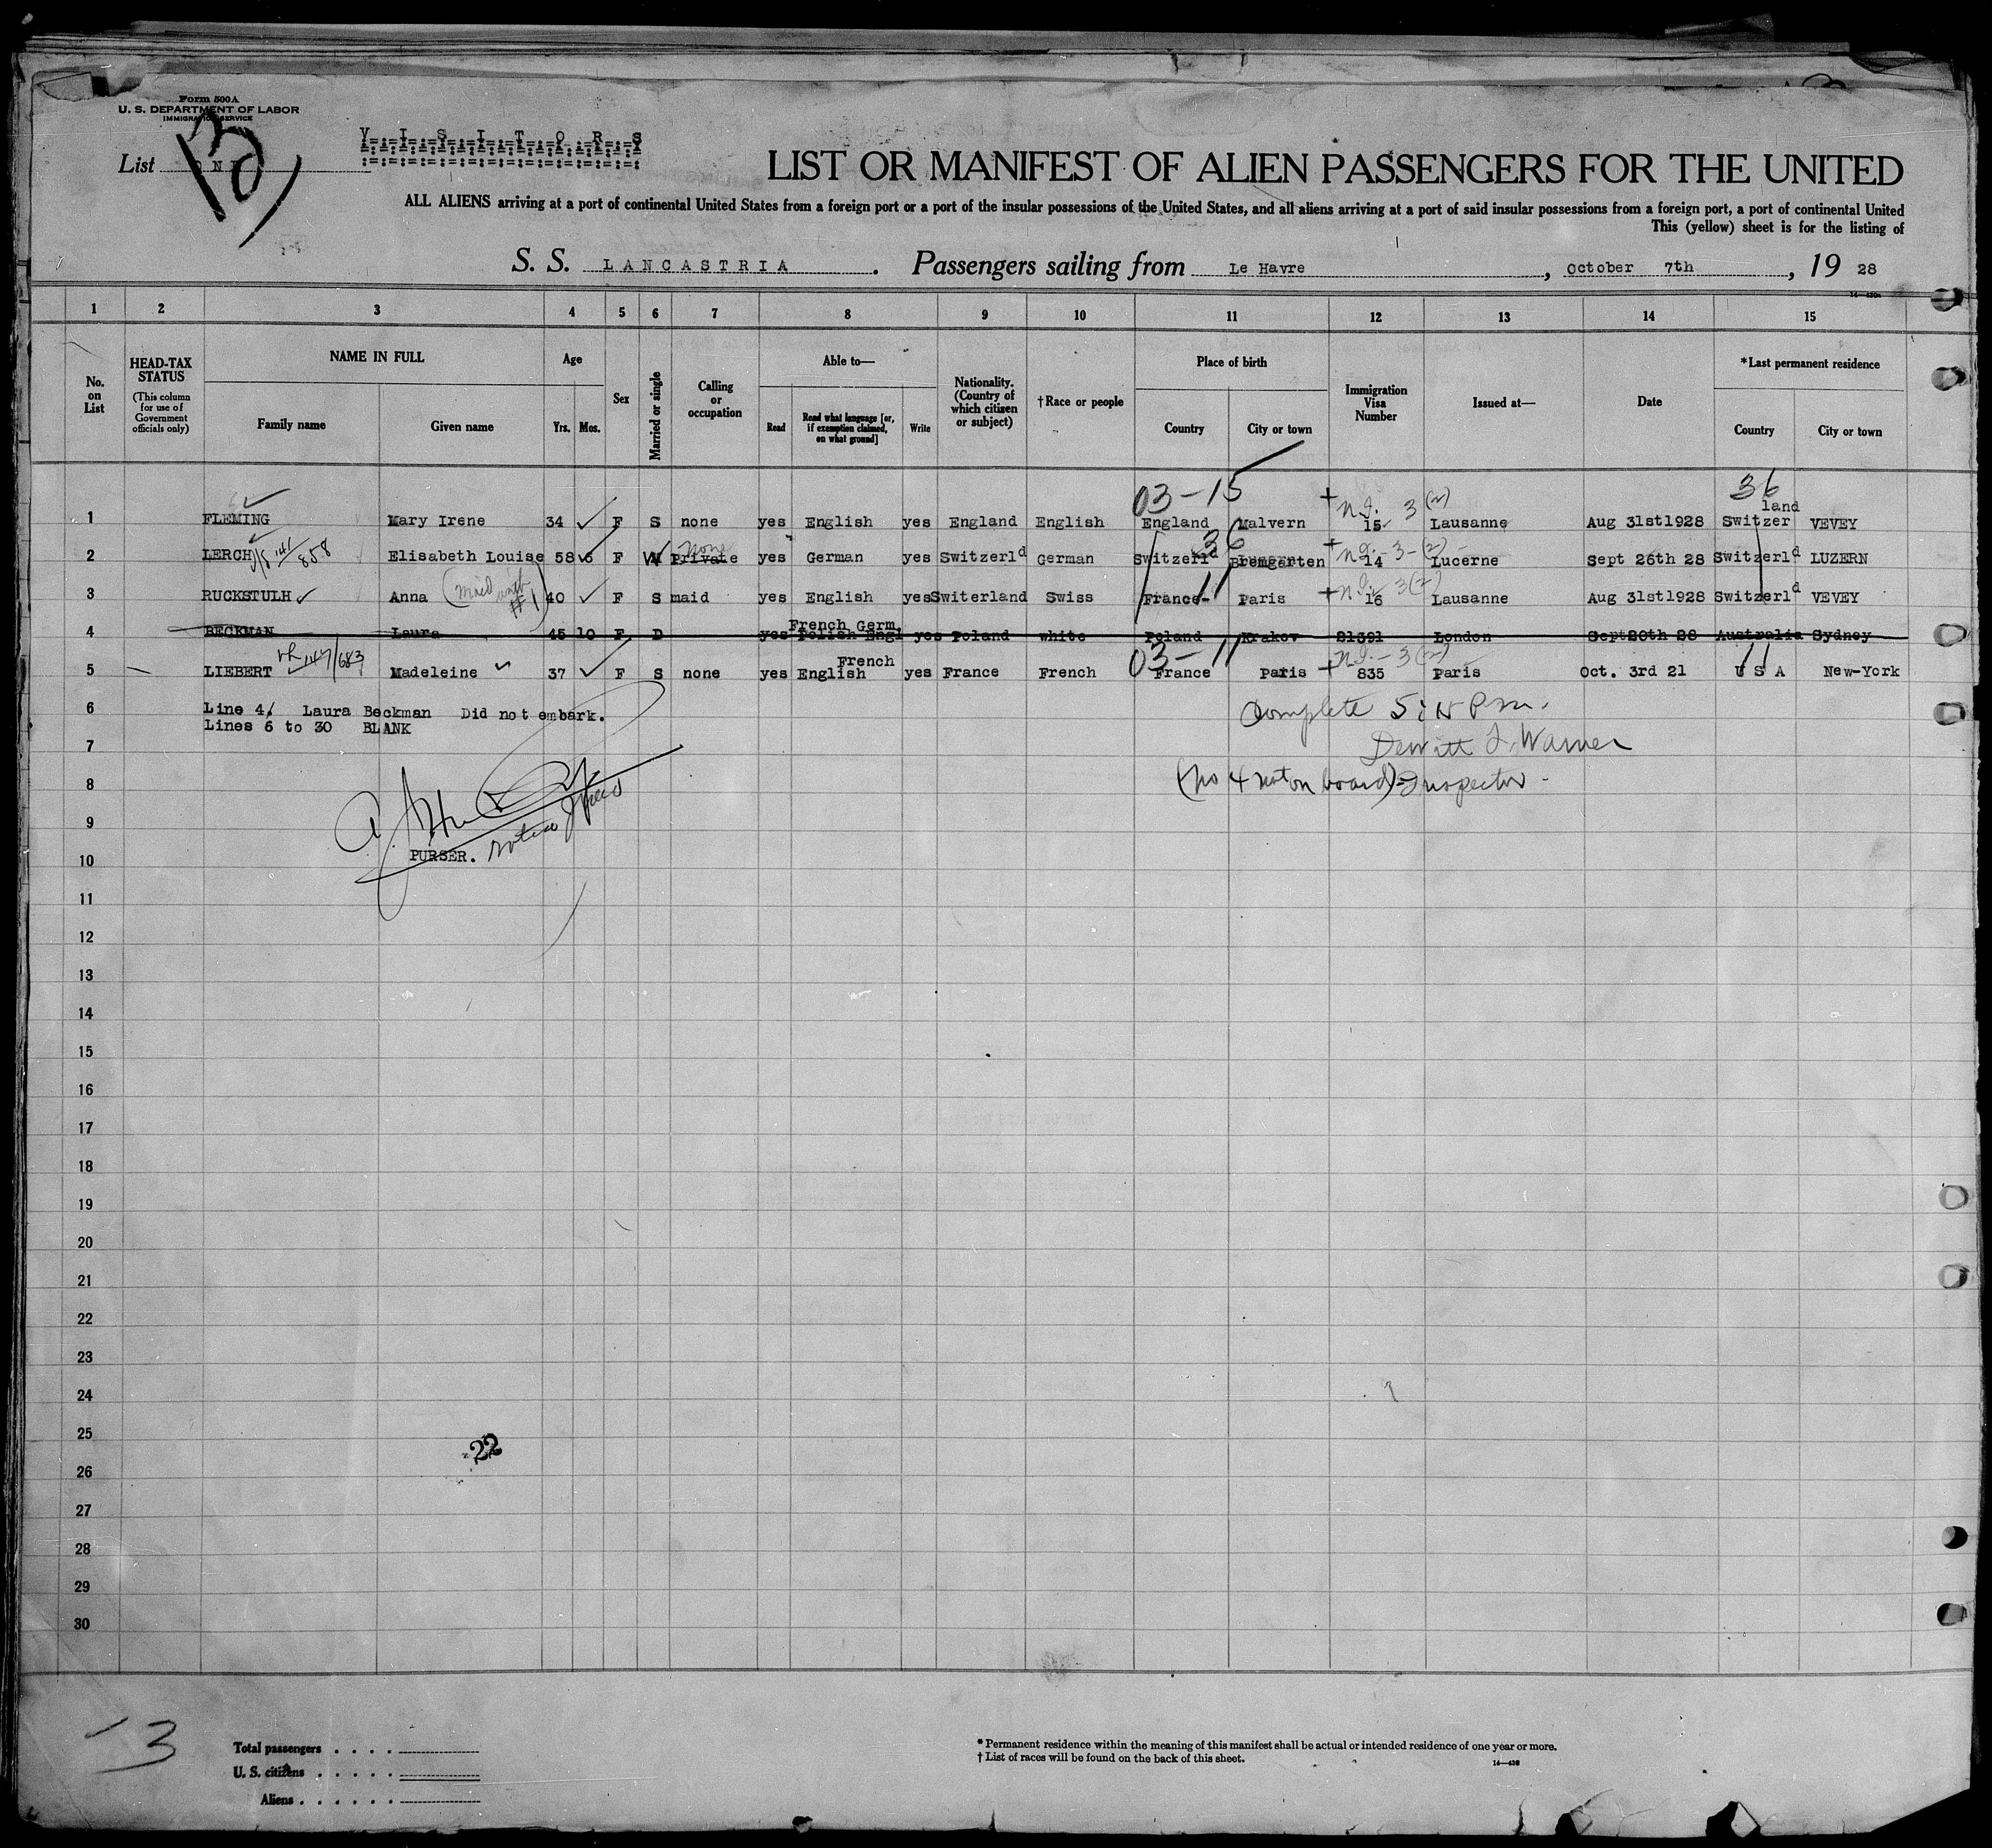 Form 500A
U. S. DEPARTMENT OF LABOR
IMMIGRATION SERVICE
V I S I T O R S
List ONE
13
LIST OR MANIFEST OF ALIEN PASSENGERS FOR THE UNITED
ALL ALIENS arriving at a port of continental United States from a foreign port or a port of the insular possessions of the United States, and all aliens arriving at a port of said insular possessions from a foreign port, a port of continental United
This (yellow) sheet is for the listing of
S. S. LANCASTRIA. Passengers sailing from Le Havre, October 7th, 19 28
1 2 3 4 5 6 7 8 9 10 11 12 13 14 15
No. on List
HEAD-TAX STATUS (This column for use of Government officials only)
NAME IN FULL Family name Given name
Age Yrs. Mos.
Sex
Married or single
Calling or occupation
Able to— Read Read what language [or, if exemption claimed, on what ground] Write
Nationality. (Country of which citizen or subject)
†Race or people
Place of birth Country City or town
Immigration Visa Number
Issued at—
Date
*Last permanent residence Country City or town
03-15 N.I. 3 (2) 36
1 FLEMING Mary Irene 34 F S none yes English yes England English England Malvern 15 Lausanne Aug 31st1928 Switzer land VEVEY
141/858 none 36 N.I. - 3 - (2)
2 LERCH Elisabeth Louise 58 6 F W Private yes German yes Switzerld German Switzerld Bremgarten 14 Lucerne Sept 26th 28 Switzerld LUZERN
(maid with #1) 11 N.I. 3 (2)
3 RUCKSTULH Anna 40 F S maid yes English yes Switerland Swiss France- Paris 16 Lausanne Aug 31st1928 Switzerld VEVEY
French Germ.
4 BECKMAN Laura 45 10 F D yes Polish Engl yes Poland white Poland Krakov 21391 London Sept20th 28 Australia Sydney
147/683 French 03-11 N.I. - 3 (2) 11
5 LIEBERT Madeleine 37 F S none yes English yes France French France Paris 835 Paris Oct. 3rd 21 U S A New-York
6 Line 4/ Laura Beckman Did not embark.
Lines 6 to 30 BLANK
Complete
7 Dewitt J. Warner
8 (No 4 not on board) - Inspector -
9
10 PURSER.
11
12
13
14
15
16
17
18
19
20
21
22
23
24
25
22
26
27
28
29
30
13
Total passengers . . . .
U. S. citizens . . . . .
Aliens . . . . . .
* Permanent residence within the meaning of this manifest shall be actual or intended residence of one year or more.
† List of races will be found on the back of this sheet.